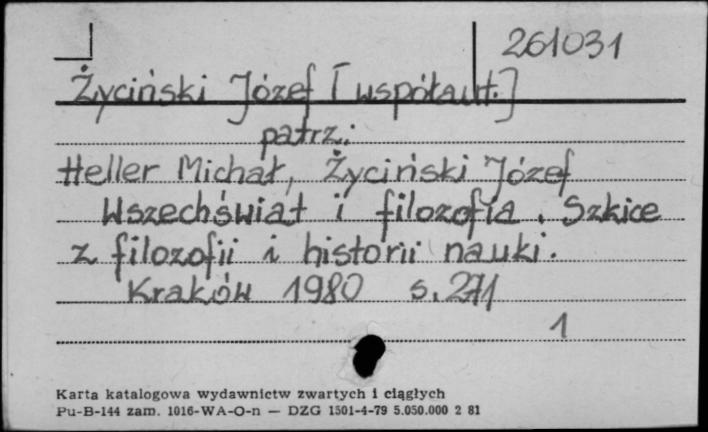 261031
Życiński Józef [współaut.]
patrz:
Heller Michał, Życiński Józef
Wszechświat i filozofia. Szkice
z filozofii i historii nauki.
Kraków 1980 s. 271
1
Karta katalogowa wydawnictw zwartych i ciągłych
Pu-B-144 zam. 1016-WA-O-n — DZG 1501-4-79 5.050.000 2 81